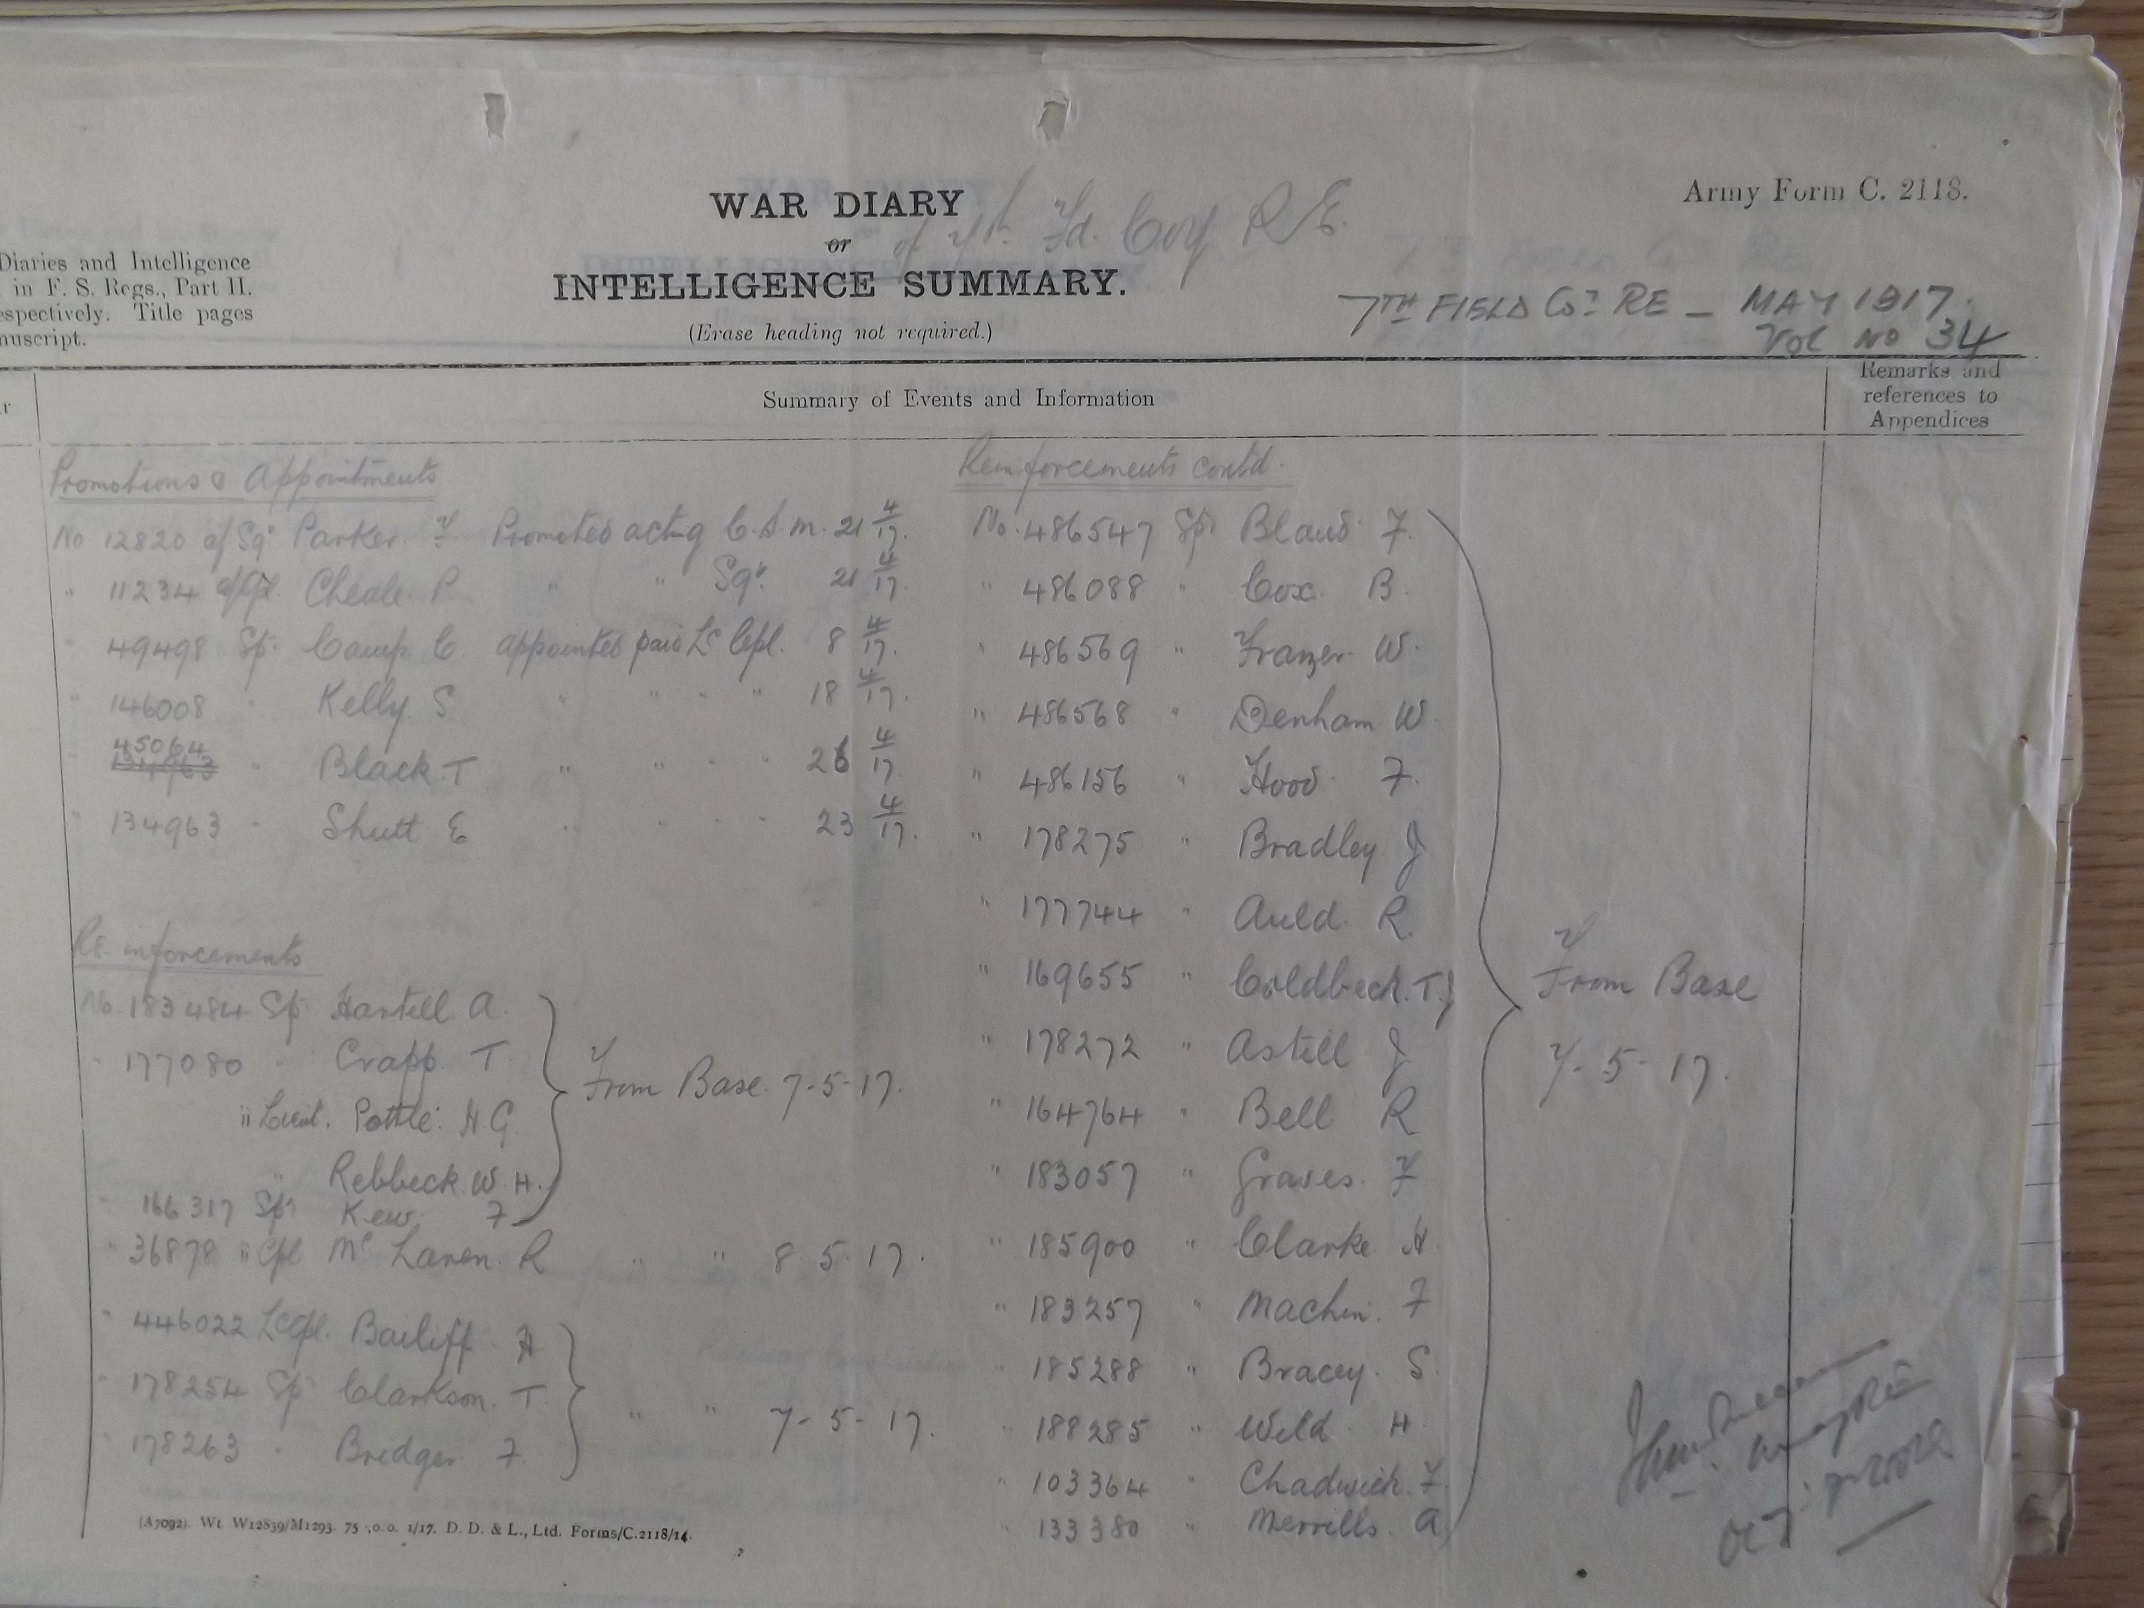 Army Form C. 2118.
WAR DIARY
of 7th. Fd. Coy R.E.
or
INTELLIGENCE SUMMARY.
(Erase heading not required.)
Diaries and Intelligence
in F. S. Regs., Part II.
espectively. Title pages
nuscript.
7TH FIELD Coy RE — MAY 1917.
Vol No 34
Summary of Events and Information
Remarks and
references to
Appendices
Promotions & Appointments
No 12820 a/Sgt Parker. F Promoted acting C.S.M. 21 4/17.
" 11234 Cheale P " " Sgt. 21 4/17.
" 49498 Sp. Camp C. appointed paid Lc Cpl. 8 4/17.
" 146008 " Kelly S " " " " 18 4/17.
" 45064 " Black T " " " " 26 4/17.
" 134963 " Shutt E " " " " 23 4/17.
Re-inforcements
No. 183484 Sp. Hartell A.
" 177080 " Crapp T
" Lieut. Pottle. H.G.
" Rebbeck W.H.
166317 Spr Kew F
From Base. 7-5-17.
" 36878 " Cpl McLaren. R " " 8.5.17.
" 446022 Lcpl. Bailiff. H
" 178254 Sp Clarkson. T
" 178263 " Bridger F.
" " 7-5-17.
Reinforcements contd.
No. 486547 Sp. Bland F.
" 486088 " Cox. B.
" 486569 " Frazer W.
" 486568 " Denham W.
" 486156 " Hood F.
" 178275 " Bradley J
" 177744 " Auld. R.
" 169655 " Coldbeck. T.
" 178272 " Astill J
" 164764 " Bell R
" 183057 " Graves. F
" 185900 " Clarke H.
" 183257 " Machin. F
" 185288 " Bracey. S.
" 188285 " Weld H
" 103364 " Chadwick. F.
" 133380 " Merrills. A
From Base
7-5-17.
(A7092). Wt. W12839/M1293. 75 ,0.0. 1/17. D. D. & L., Ltd. Forms/C.2118/14.